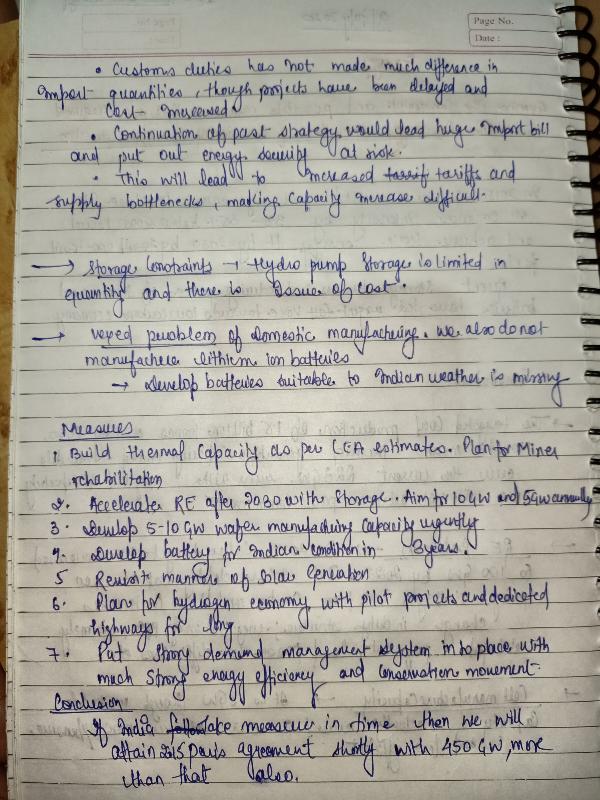 Page No.
Date :
• Customs duties has not made much difference in
import quantities, though projects have been delayed and
cost increased.
• Continuation of past strategy would lead huge import bill
and put out energy security at risk.
• This will lead to increased tariffs and
supply bottlenecks, making capacity increase difficult.
→ Storage Constraints → Hydro pump storage is limited in
quantity and there is issue of cost.
→ vexed problem of domestic manufacturing. we also do not
manufacture lithium ion batteries
→ Develop batteries suitable to Indian weather is missing
Measures
1. Build thermal capacity as per CEA estimates. Plan for Mines
rehabilitation
2. Accelerate RE after 2030 with storage. Aim for 10 GW and 5GW annually
3. Develop 5-10 GW wafer manufacturing capacity urgently
4. Develop battery for Indian condition in 3 years.
5 Revisit manner of Solar Generation
6. Plan for hydrogen economy with pilot projects and dedicated
highways for long
7. Put strong demand management system in to place with
much strong energy efficiency and conservation movement.
Conclusion
If India take measure in time then we will
attain 2015 Paris agreement shortly with 450 GW, more
than that also.